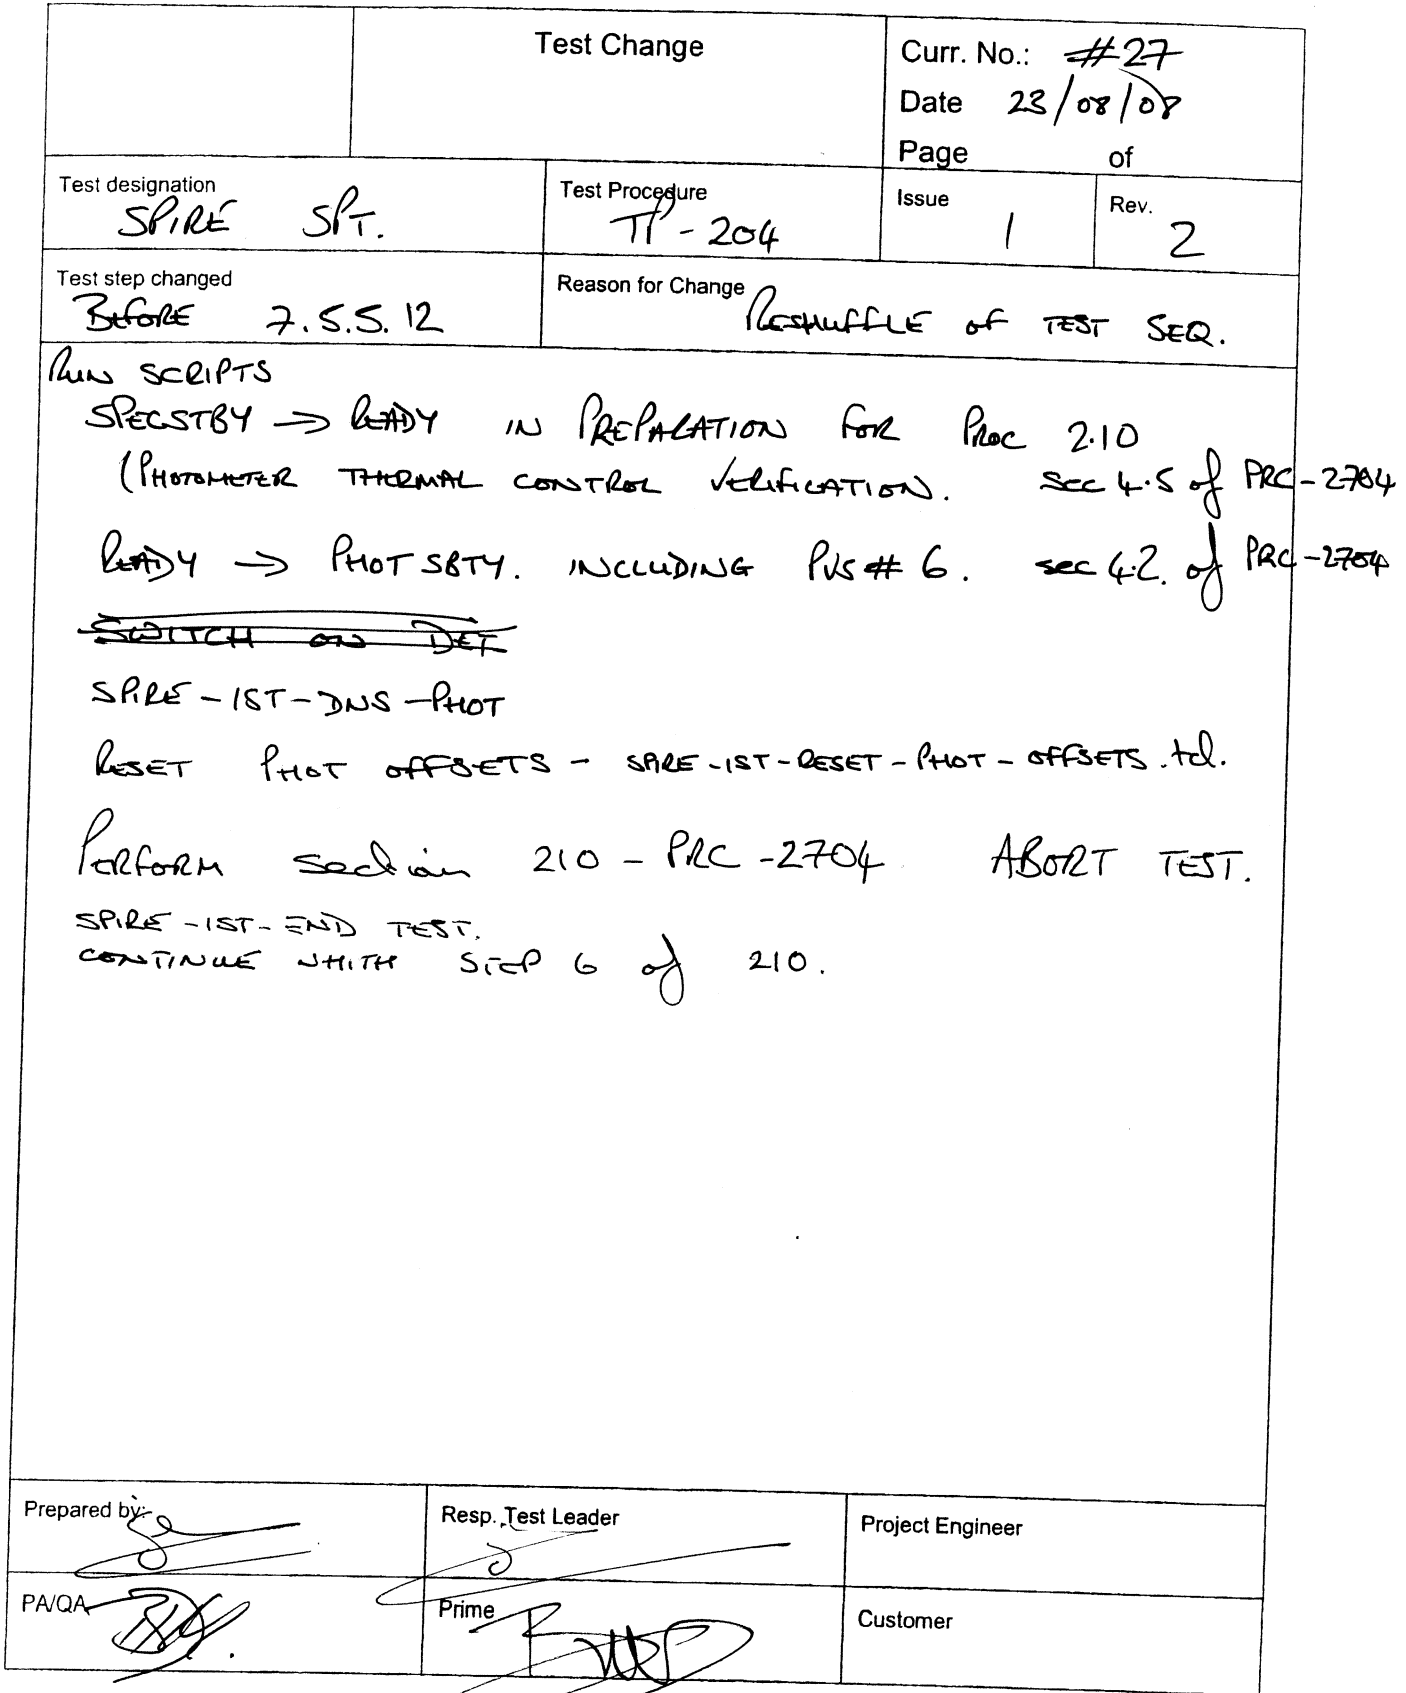 Test Change
Curr. No.: #27
Date 23/08/08
Page of
Test designation
SPIRE SPT.
Test Procedure
TP-204
Issue
1
Rev.
2
Test step changed
BEFORE 7.5.5.12
Reason for Change
RESHUFFLE OF TEST SEQ.
RUN SCRIPTS
SPECSTBY → READY IN PREPARATION FOR PROC 2.10
(PHOTOMETER THERMAL CONTROL VERIFICATION. SEC 4.5 of PRC-2704
READY → PHOT SBTY. INCLUDING PVS # 6. SEC 4.2. of PRC-2704
SWITCH ON DET
SPIRE-IST-DNS-PHOT
RESET PHOT OFFSETS - SPIRE-IST-RESET-PHOT-OFFSETS.tcl.
PERFORM section 210 - PRC-2704 ABORT TEST.
SPIRE-IST-END TEST.
CONTINUE WHITH STEP 6 of 210.
Prepared by:
Resp. Test Leader
Project Engineer
PA/QA
Prime
Customer